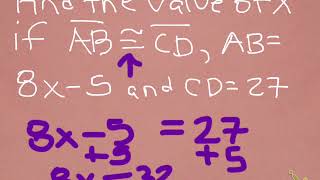 Find the value of x
if AB ≅ CD, AB=
8x-5 and CD=27
8x-5 =27
+5 +5
8x=32